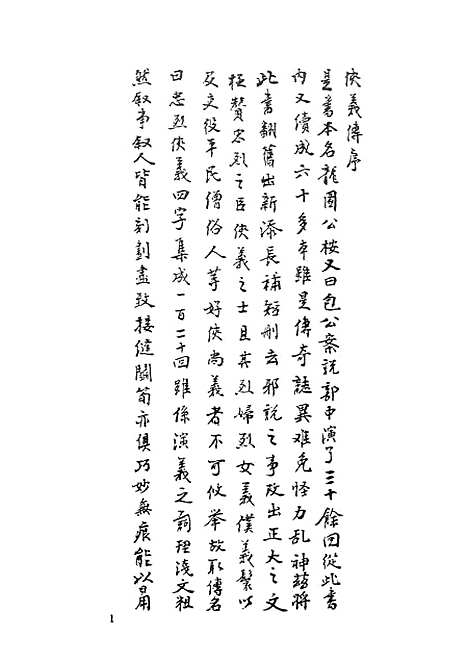 侠義傳序
是書本名龍圖公桉又曰包公案説部中演了三十餘回從此書
内又續成六十多本雖是傳奇誌異难免怪力乱神兹將
此書翻舊出新添長補短刪去邪説之事改出正大之文
極賛忠烈之臣侠義之士且其烈婦烈女義僕義鬟以
及吏役平民僧俗人等好侠尚義者不可攸举故取傳名
曰忠烈侠義四字集成一百二十回雖係演義之詞理淺文粗
然叙事叙人皆能刻劃盡致接縫鬭笋亦俱巧妙無痕能以日用
1